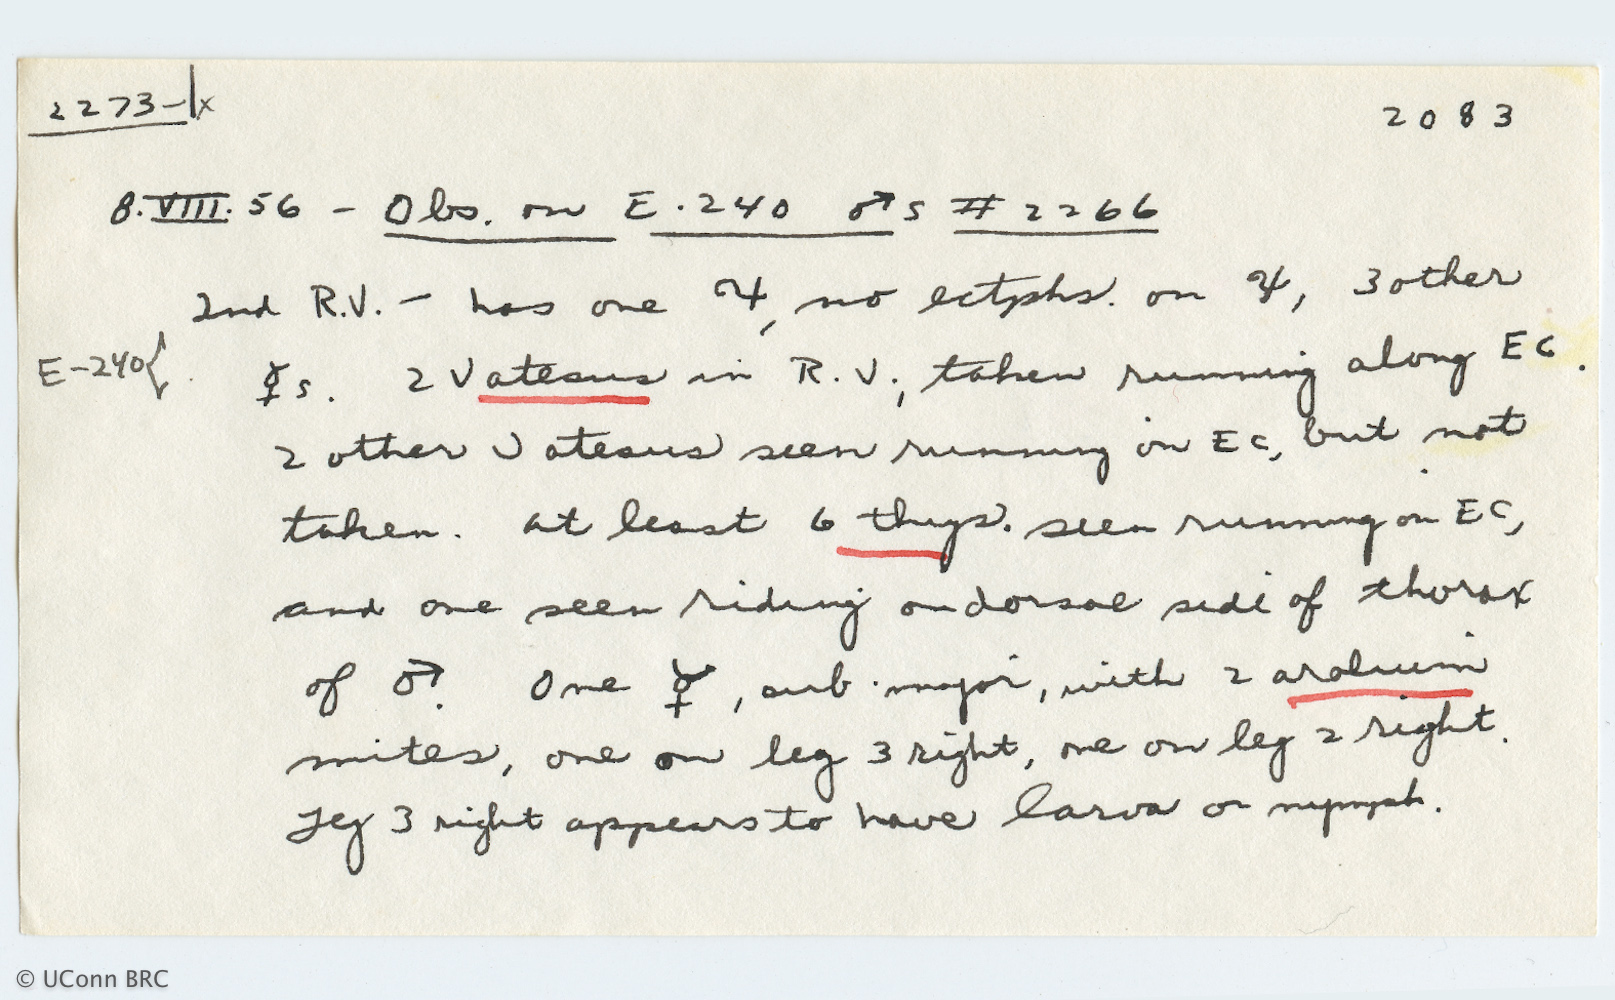 2273-1x
2083
8.VIII.56 - Obs. on E.240 ♂s # 2266
2nd R.V. - has one , no ectphs. on , 3 other
E-240{
☿s. 2 Vatesus in R.V., taken running along EC.
2 other Vatesus seen running on EC, but not
taken. At least 6 thys. seen running on EC,
and one seen riding on dorsal side of thorax
of ♂. One ☿, sub. major, with 2 arolium
mites, one on leg 3 right, one on leg 2 right.
Leg 3 right appears to have larva or nymph.
© UConn BRC